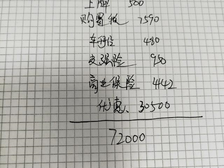 上牌 500
购置税 7590
车船 480
交强险 950
商业保险 4142
优惠、30500
72000